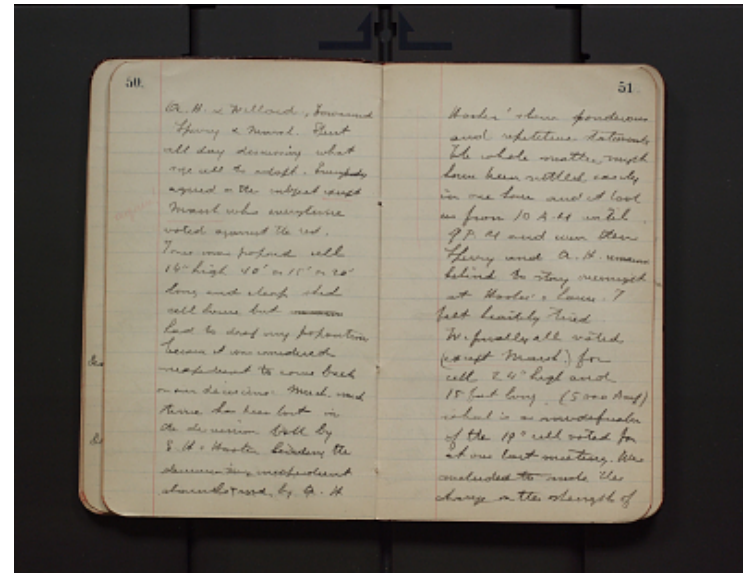 50.
& Willard, Townsend
Sperry & Marsh. Spent
all day discussing what
size cell to adopt. Everybody
agreed on the subject except
Marsh who everytime
voted against the rest.
I was
14" high 40' or 15' or 20'
long and cheap shed
cell house but
had to drop my proposition
because it was considered
inexpedient to come back
on our decision. Much, much
time has been lost in
the discussion both by
the
discussion
by A. H.
51
Hoxie's slow ponderous
and repetitive statements
The whole matter might
have been settled easily
in one hour and it took
us from 10 A.M until
9 P.M and even then
Sperry and A. H. remained
behind to stay overnight
at Hoxie's house. I
felt heartily tired.
We finally all voted
(except Marsh) for
cell 24" high and
15 feet long. (5000 Amp)
which is a
of the 19" cell voted for
at our last meeting. We
concluded to make the
change on the strength of